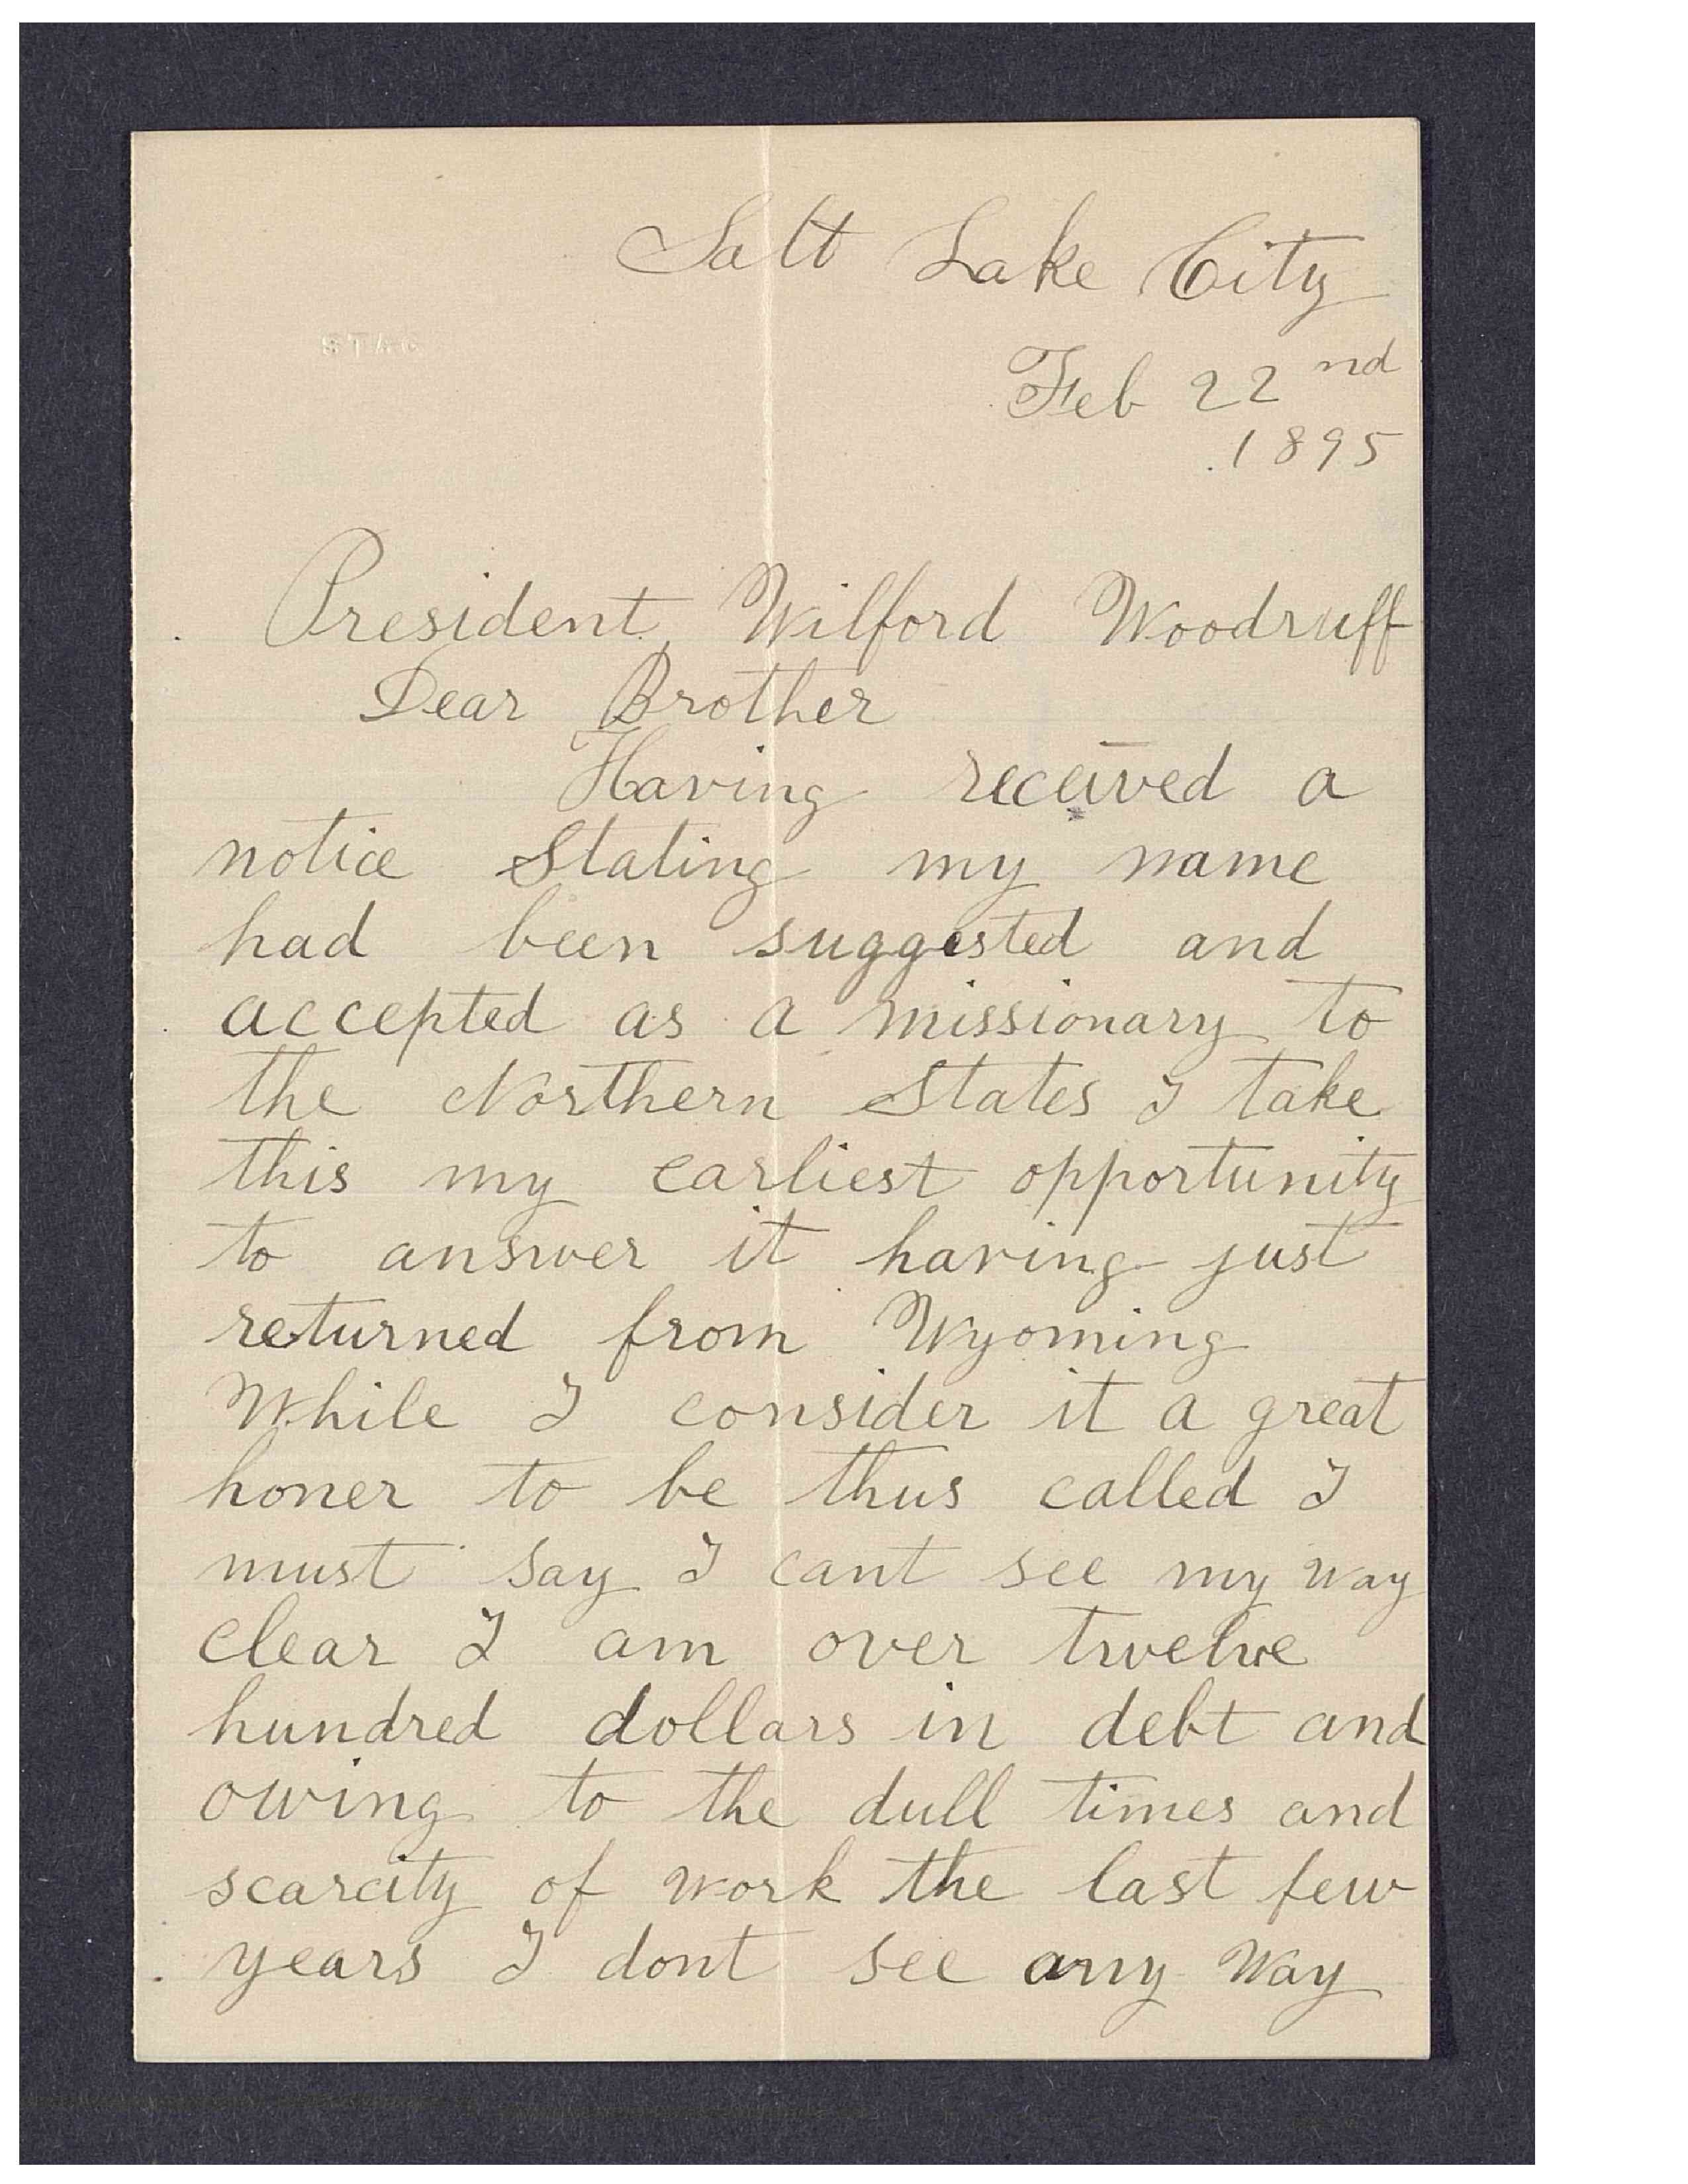 Salt Lake City
Feb 22nd
1895
STAG
President Wilford Woodruff
Dear Brother
Having received a
notice Stating my name
had been suggested and
accepted as a missionary to
the Northern States I take
this my earliest opportunity
to answer it having just
returned from Wyoming
While I consider it a great
honer to be thus called I
must say I cant see my way
clear I am over twelve
hundred dollars in debt and
owing to the dull times and
scarcity of work the last few
years I dont see any way